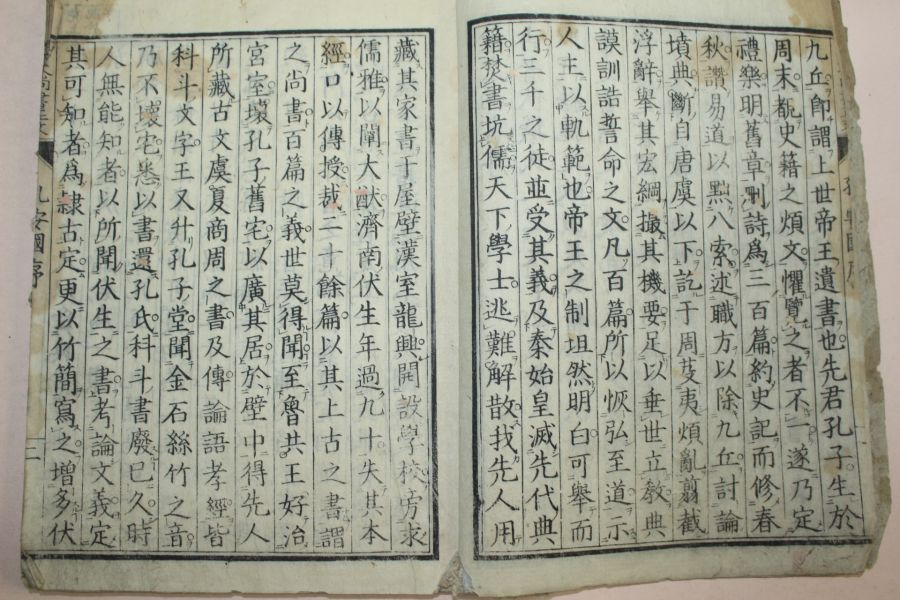 九丘即謂上世帝王遺書也先君孔子生於
周末覩史籍之煩文懼覽之者不一遂乃定
禮樂明舊章刪詩爲三百篇約史記而修春
秋讚易道以黜八索述職方以除九丘討論
墳典斷自唐虞以下訖于周芟夷煩亂翦截
浮辭舉其宏綱撮其機要足以垂世立敎典
謨訓誥誓命之文凡百篇所以恢弘至道示
人主以軌範也帝王之制坦然明白可舉而
行三千之徒並受其義及秦始皇滅先代典
籍焚書坑儒天下學士逃難解散我先人用
藏其家書于屋壁漢室龍興開設學校旁求
儒雅以闡大猷濟南伏生年過九十失其本
經口以傳授裁二十餘篇以其上古之書謂
之尚書百篇之義世莫得聞至魯共王好治
宮室壞孔子舊宅以廣其居於壁中得先人
所藏古文虞夏商周之書及傳論語孝經皆
科斗文字王又升孔子堂聞金石絲竹之音
乃不壞宅悉以書還孔氏科斗書廢已久時
人無能知者以所聞伏生之書考論文義定
其可知者爲隷古定更以竹簡寫之增多伏
孔安國序
二